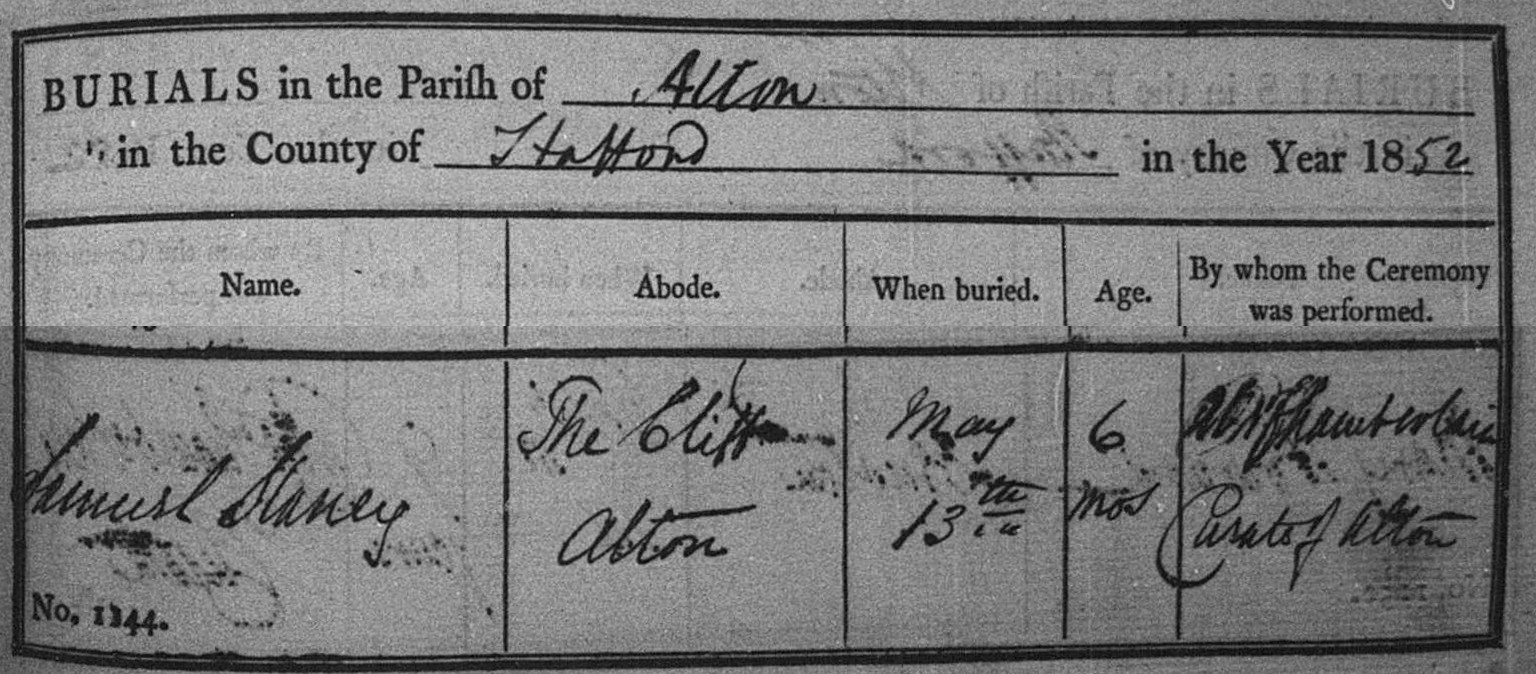 BURIALS in the Pariſh of Alton
in the County of Stafford in the Year 1852
Name. Abode. When buried. Age. By whom the Ceremony was performed.
Samuel Slaney The Cliff Alton May 13th 6 mos Chamberlain Curate of Alton
No. 1344.